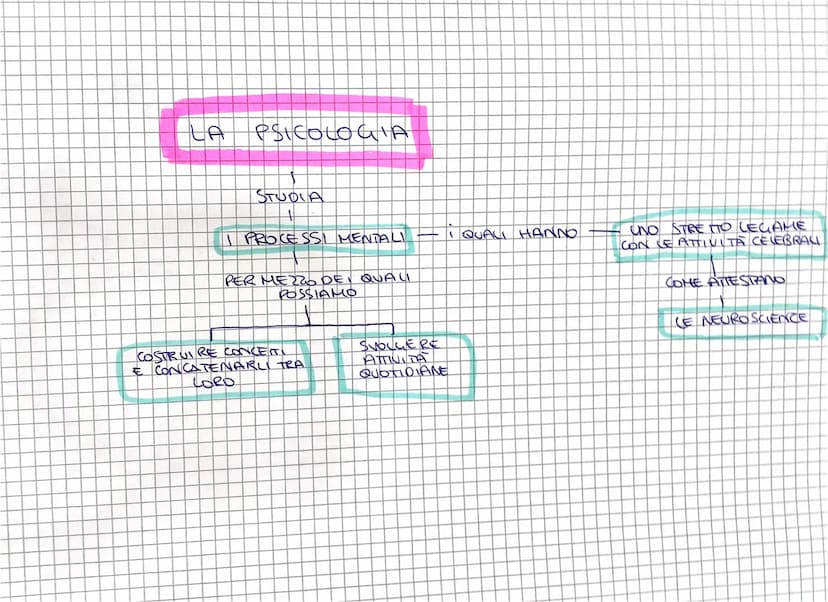 LA PSICOLOGIA
STUDIA
I PROCESSI MENTALI
i QUALI HANNO
UNO STRETTO LEGAME
CON LE ATTIVITÀ CELEBRALI
PER MEZZO DEI QUALI
POSSIAMO
COME ATTESTANO
LE NEUROSCIENCE
COSTRUIRE CONCETTI
E CONCATENARLI TRA
LORO
SVOLGERE
ATTIVITÀ
QUOTIDIANE